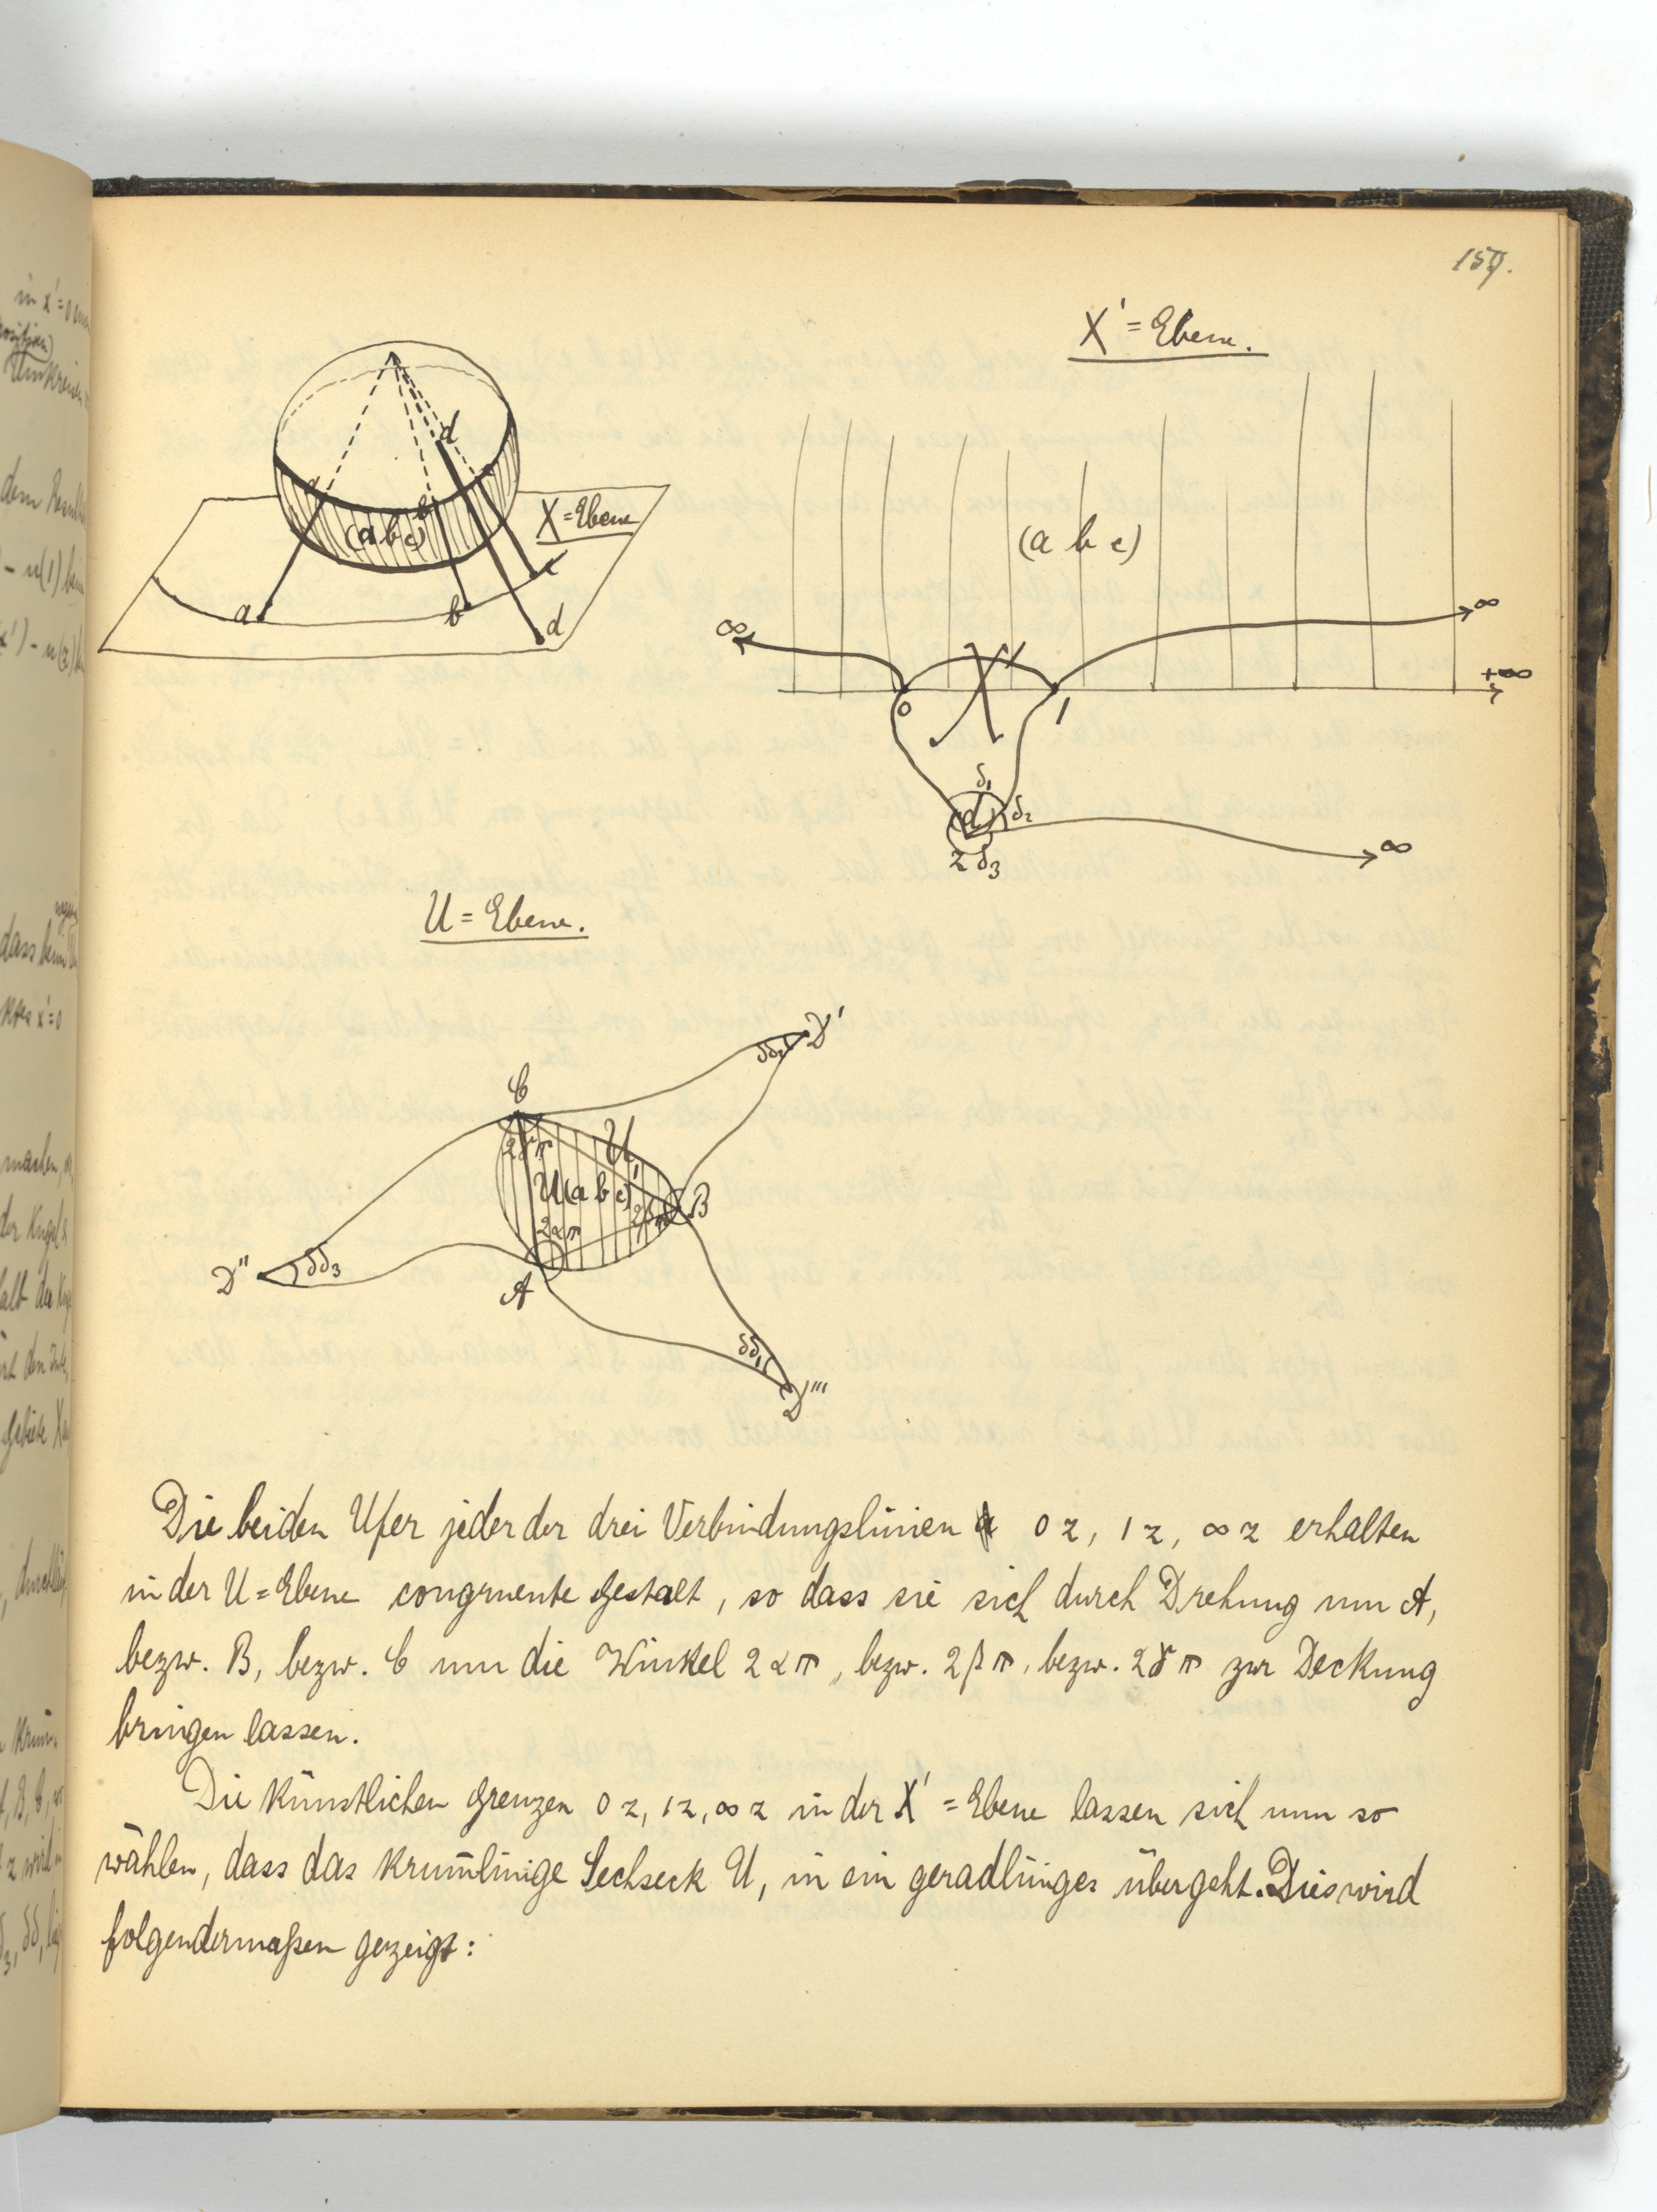 159.
X' = Ebene.
d
a
b
c
(abc)
X = Ebene
a
b
c
d
(a b c)
∞
∞
+∞
0
1
δ₁
(d)
δ₂
z δ₃
∞
U = Ebene.
D'
δδ₂
C
2γπ
U₁
U(abc)
2βπ
B
2απ
D''
δδ₃
A
δδ₁
D'''
Die beiden Ufer jeder der drei Verbindungslinien 0z, 1z, ∞z erhalten
in der U = Ebene congruente Gestalt, so dass sie sich durch Drehung um A,
bezw. B, bezw. C um die Winkel 2απ, bezw. 2βπ, bezw. 2γπ zur Deckung
bringen lassen.
Die künstlichen Grenzen 0z, 1z, ∞z in der X' = Ebene lassen sich nun so
wählen, dass das krum̄linige Sechseck U, in ein geradliniges übergeht. Dies wird
folgendermaßen gezeigt:
in x' = 0
dem
- u(1)
dass beim
x' = 0
machen,
der Kugel